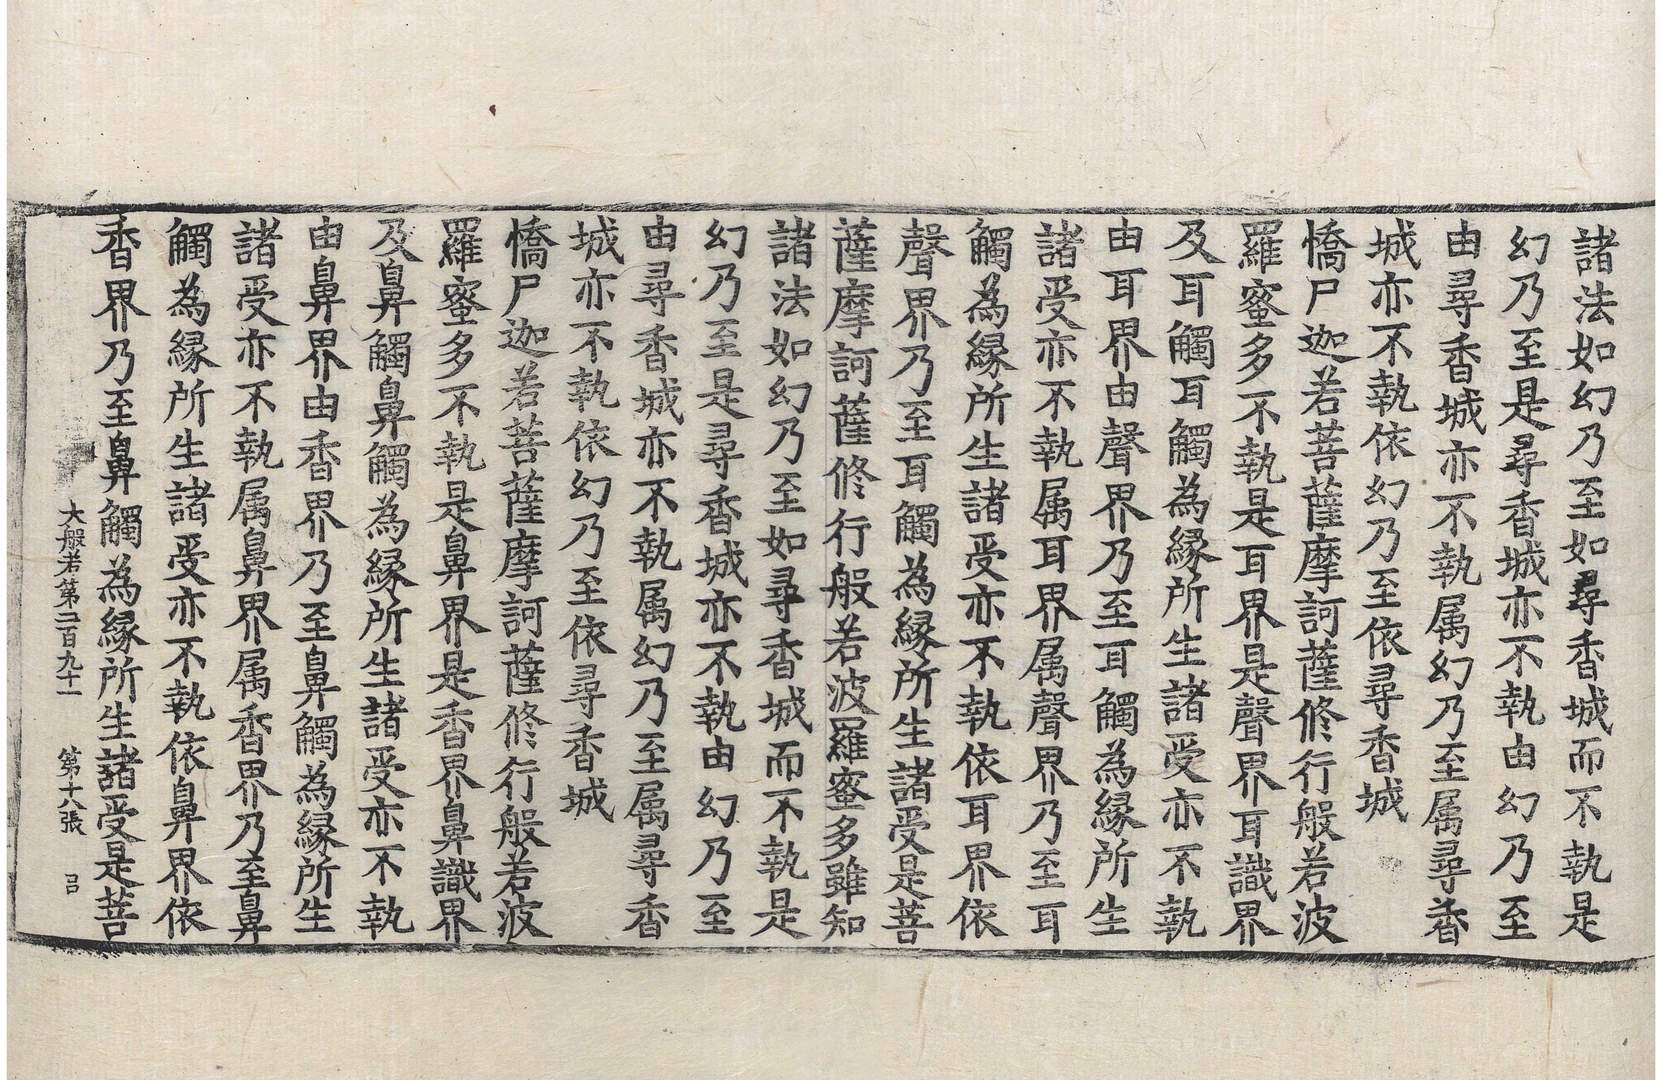 諸法如幻乃至如尋香城而不執是
幻乃至是尋香城亦不執由幻乃至
由尋香城亦不執属幻乃至属尋香
城亦不執依幻乃至依尋香城
憍尸迦若菩薩摩訶薩修行般若波
羅蜜多不執是耳界是聲界耳識界
及耳觸耳觸為縁所生諸受亦不執
由耳界由聲界乃至耳觸為縁所生
諸受亦不執属耳界属聲界乃至耳
觸為縁所生諸受亦不執依耳界依
聲界乃至耳觸為縁所生諸受是菩
薩摩訶薩修行般若波羅蜜多雖知
諸法如幻乃至如尋香城而不執是
幻乃至是尋香城亦不執由幻乃至
由尋香城亦不執属幻乃至属尋香
城亦不執依幻乃至依尋香城
憍尸迦若菩薩摩訶薩修行般若波
羅蜜多不執是鼻界是香界鼻識界
及鼻觸鼻觸為縁所生諸受亦不執
由鼻界由香界乃至鼻觸為縁所生
諸受亦不執属鼻界属香界乃至鼻
觸為縁所生諸受亦不執依鼻界依
香界乃至鼻觸為縁所生諸受是菩
大般若第二百九十一 第十八張 吕